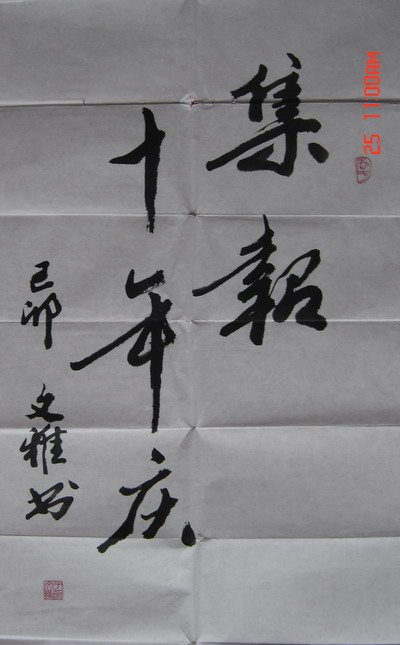 集報
十年庆
己卯
文雅书
25 11:00AM